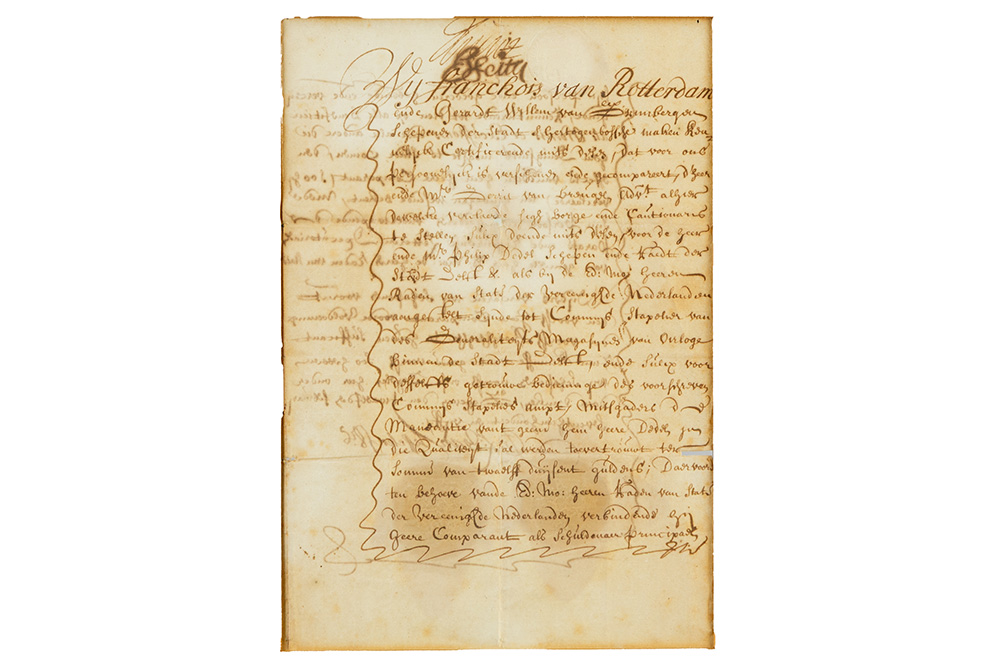 Wij franchois van Rotterdam
ende Gerardt Willem van
Schepenen der Stadt sHertogenbossche maken Ken-
nelyck Certificerende mits desen, dat voor ons
persoonelijck is verschenen ende gecompareert, d'heer
ende Mr. van Advt. alhier
dewelcke verclaerde sigh borge ende Cautionaris
te Stellen, sulx doende mits desen, voor de heer
ende Mr. Philix Dedel Schepen ende Raedt der
Stadt Delft & als bij de Ed: Mo: Heeren
Raden van State der Vereenighde Nederlanden
aengestelt sijnde tot Commijs Stapelier van
des Generaliteyts Magasijnen van Orloge
Binnen de Stadt Delft, ende sulx voor
desselffs getrouwe bedieninge des voorschreven
Commijs Stapeliers ampt, Mitsgaders de
Manoantie vant geene hem heere Dedel in
die Qualiteyt sal werden toevertrouwt ter
Somme van twaelff duijsent guldens; Daervoore
ten behoeve vande Ed: Mo: Heeren Raden van State
der Vereenighde Nederlanden verbindende hij
heere Comparant als Schuldenaer Principael